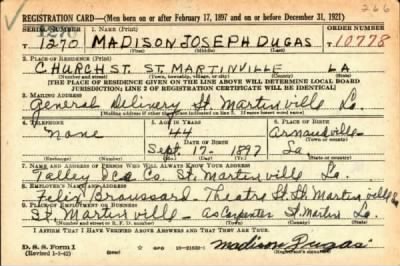 266
REGISTRATION CARD—(Men born on or after February 17, 1897 and on or before December 31, 1921)
SERIAL NUMBER 1. NAME (Print) ORDER NUMBER
1270 MADISON JOSEPH DUGAS 10778
(First) (Middle) (Last)
2. PLACE OF RESIDENCE (Print)
CHURCH ST. ST. MARTINVILLE LA
(Number and street) (Town, township, village, or city) (County) (State)
[THE PLACE OF RESIDENCE GIVEN ON THE LINE ABOVE WILL DETERMINE LOCAL BOARD
JURISDICTION; LINE 2 OF REGISTRATION CERTIFICATE WILL BE IDENTICAL]
3. MAILING ADDRESS
General Delivery St. Martinville La.
[Mailing address if other than place indicated on line 2. If same insert word same]
4. TELEPHONE 5. AGE IN YEARS 6. PLACE OF BIRTH
None 44 Arnaudville
DATE OF BIRTH (Town or county)
Sept. 17- 1897 La
(Exchange) (Number) (Mo.) (Day) (Yr.) (State or country)
7. NAME AND ADDRESS OF PERSON WHO WILL ALWAYS KNOW YOUR ADDRESS
Talley Ice Co. St. Martinville La.
8. EMPLOYER'S NAME AND ADDRESS
Felix Broussard Theatre St. St. Martinville
9. PLACE OF EMPLOYMENT OR BUSINESS
St. Martinville - as Carpenter St. Martin La.
(Number and street or R. F. D. number) (Town) (County) (State)
I AFFIRM THAT I HAVE VERIFIED ABOVE ANSWERS AND THAT THEY ARE TRUE.
D. S. S. Form 1 Madison Dugas
(Revised 1-1-42) (over) (Registrant's signature)